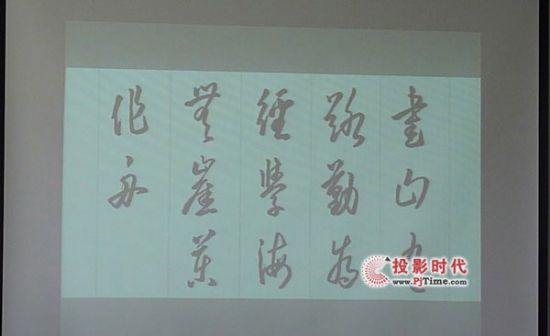 書山有
路勤為
徑學海
無崖苦
作舟
投影时代
www.PjTime.com